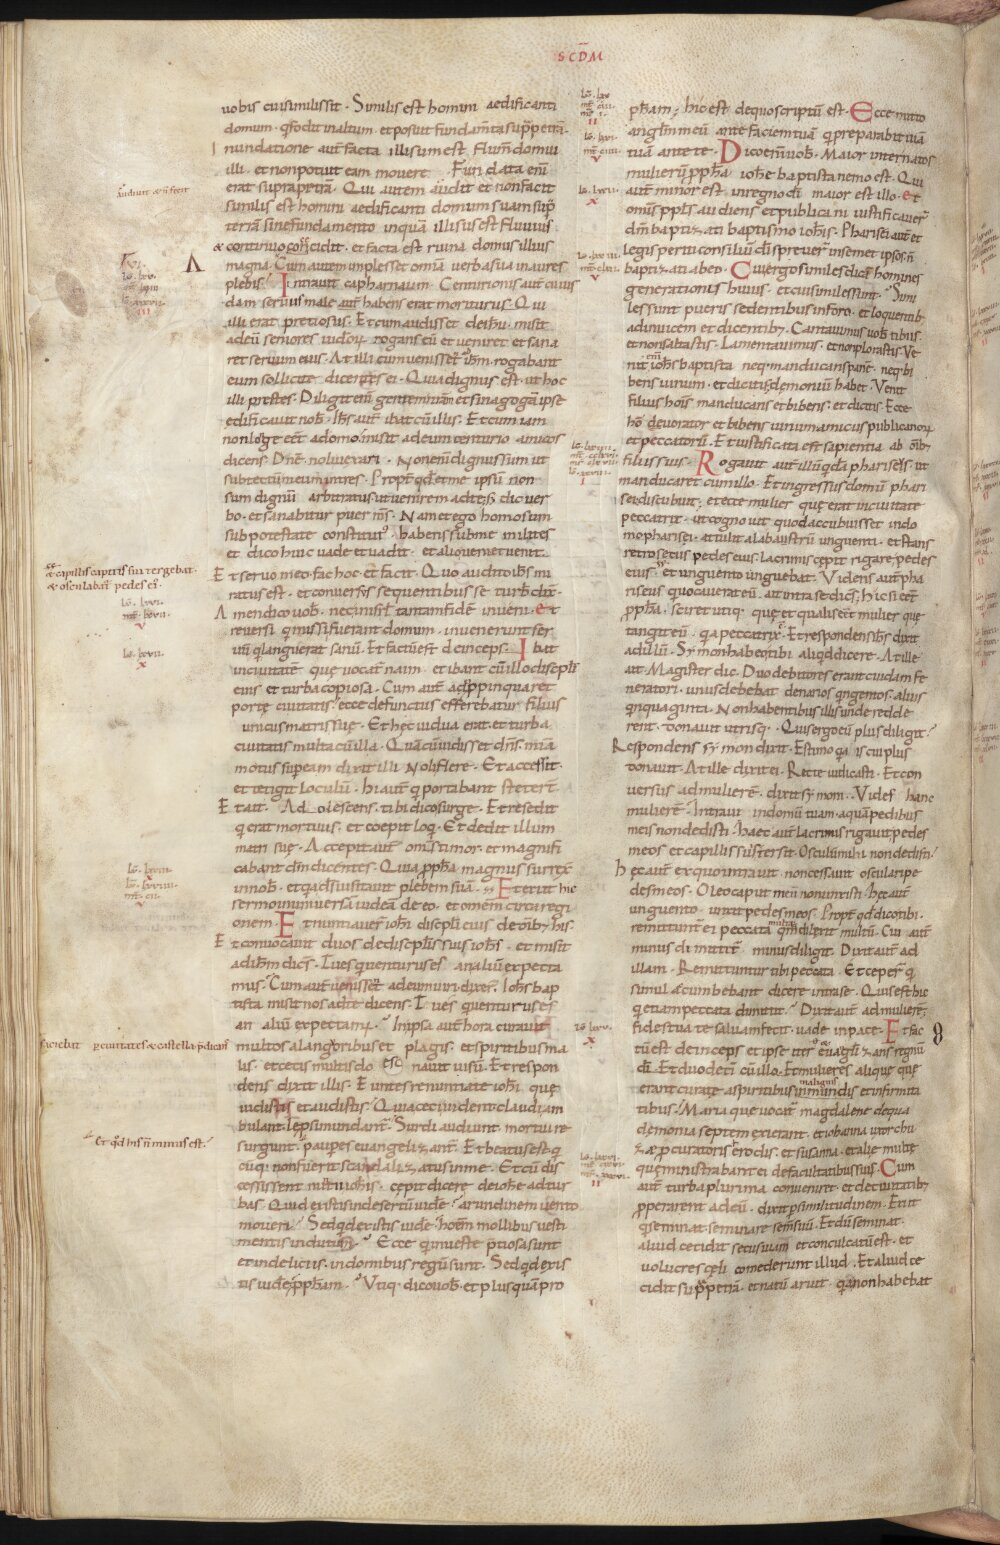 SCD̄M
uobis cui similis sit. Similis est homini aedificanti
domum. q̄ fodit in altum. et posuit fundam̄ta sup̄ petrā.
Inundatione aut̄ facta illisum est flum̄ domui
illi. et non potuit eam mouere. Fundata eni̅
erat supra petrā. Qui autem audit et non facit
similis est homini aedificanti domum suam sup̄
terrā sine fundamento in quam illisus est fluuius.
& continuo concidit. et facta est ruina domus illius
magna. Cum autem implesset omnia uerba sua in aures
plebis. Intrauit capharnaum. Centurionis aut̄ cuius
dam seruus male aut̄ habens erat moriturus. Qui
illi erat pretiosus. Et cum audisset de ih̄u. misit
ad eū seniores iudeoꝝ rogans eū et ueniret et sana
ret seruum eius. At illi cum uenisset ad ih̄m. rogabant
eum sollicite dicentes ei. Quia dignus est. ut hoc
illi prestes. Diligit enī gentem nr̄am et sinagogā ipse
edificauit nob̄. Ih̄s aut̄ ibat cū illis. Et cum iam
non longe eēt a domo misit ad eum centurio amicos
dicens. Dn̄e. noli uexari. Non enī dignus sum ut
sub tectū meum intres. Propt̄ qd̄ et me ipsū non
sum dignū arbitratus ut uenirem ad te. sed dic uer
bo. et sanabitur puer m̄s. Nam et ego homo sum
sub potestate constitut᷒. habens sub me milites
et dico huic uade et uadit. et alio ueni et uenit.
Et seruo meo fac hoc. et facit. Quo audito ih̄s mi
ratus est. et conuersus sequentibus se turb̄ dix̄.
Amen dico uob̄. nec in isrl̄ tantam fidē inueni. Et
reuersi q̄ missi fuerant domum. inuenerunt ser
uū q̄ languerat sanū. Et factū est deinceps. Ibat
in ciuitatē que uocat̄ naim. et ibant cū illo discipl̄i
eius et turba copiosa. Cum aut̄ appropinquaret
porte ciuitatis. ecce defunctus efferebatur filius
unicus matris sue. Et hec uidua erat et turba
ciuitatis multa cū illa. Quā cū uidisset dn̄s. mi̅a
motus sup̄ eam dixit illi Noli flere. Et accessit.
et tetigit loculū. Hi aut̄ q̄ portabant steterr̄.
Et ait. Adolescens. tibi dico surge. Et resedit
q̄ erat mortuus. et coepit loq̄. Et dedit illum
matri sue. Accepit aut̄ om̄s timor. et magnifi
cabant dm̄ dicentes. Quia ꝓph̄a magnus surrex̄
in nob̄. et q̄a ds̄ uisitauit plebem suā. Et exiit hic
sermo in uniuersā iudeā de eo. et omem̄ circa regi
onem. Et nuntiauer̄ ioh̄i discipl̄i eius de om̄ib; his.
Et conuocauit duos de discipl̄is suis ioh̄s. et misit
ad ih̄m dic̄s. Tu es qui uenturus es an aliū expecta
mus. Cum aut̄ uenisset ad eum uiri dixer̄. Ioh̄s bap
tista misit nos ad te dicens. Tu es q̄ uenturus es
an aliū expectam᷒. In ipsa aut̄ hora curauit
multos a langoribus et plagis. et spiritibus ma
lis. et cecis multis donauit uisū. Et respon
dens dixit illis. Euntes renuntiate ioh̄i que
uidistis et audistis. Quia ceci uident claudi am
bulant. lep̄si mundant̄. Surdi audiunt. mortui re
surgunt. paup̄es euangelizant̄. Et beatus est q̄
cūq; non fuerit scandalizatus in me. Et cū dis
cessissent nuntii ioh̄is. cepit dicere de ioh̄e ad tur
bas. Quid existis in desertū uidere? arundinem uento
moueri? Sed q̄d existis uide? hoīem mollibus uesti
mentis indutum? Ecce q̄ in ueste p̄tiosa sunt
et in deliciis. in domibus regū sunt. Sed q̄d exis
tis uidere ꝓph̄am? Vtiq; dico uob̄. et plus quā pro
ph̄am; hic est de quo scriptū est. Ecce mitto
anglm̄ meū ante faciem tuā q̄ preparabit uiā
tuā ante te. Dico enī uob̄. Maior inter natos
mulierū ꝓph̄a ioh̄e baptista nemo est. Qui
aut̄ minor est in regno dī maior est illo. Et
om̄is ppl̄s audiens et publicani iustificauer̄
dm̄ baptizati baptismo ioh̄is. Pharisei aut̄ et
legis periti consiliū dī spreuer̄ in semet ipsos. n̄
baptizati ab eo. Cui ergo similes dicā homines
generationis huius. et cui similes sunt. Simi
les sunt pueris sedentibus in foro. et loquentib;
ad inuicem et dicentib; Cantauimus uob̄ tibiis
et non saltastis. Lamentauimus. et non plorastis. Ve
nit enī ioh̄s baptista neq; manducans panē. neq; bi
bens uinum. et dicitis demoniū habet. Venit
filius hoīs manducans et bibens. et dicitis. Ecce
hō deuorator et bibens uinum amicus publicanoꝝ
et peccatoꝝ. Et iustificata est sapientia ab om̄ib;
filiis suis. Rogauit aut̄ illū q̄dā phariseus. ut
manducaret cum illo. Et ingressus domū phari
sei discubuit; et ecce mulier que erat in ciuitate
peccatrix. ut cognouit quod accubuisset in do
mo pharisei. attulit alabastrū unguenti. et stans
retro secus pedes eius. lacrimis cepit rigare pedes
eius. et unguento unguebat. Videns aut̄ pha
riseus qui uocauerat eū. ait intra se dic̄s. hic si eēt
ꝓph̄a. sciret utiq; que et qualis eēt mulier que
tangit eū. q̄a peccatrix ē. Et respondens ih̄s dixit
ad illū. Symon habeo tibi aliq̄d dicere. At ille
ait. Magister dic. Duo debitores erant cuidam fe
neratori. unus debebat denarios q̄ngentos. alius
q̄nquaginti. Non habentibus illis unde redde
rent. donauit utrisq;. Quis ergo eū plus diligit?
Respondens symon dixit. Estimo q̄a is cui plus
donauit. At ille dixit ei. Recte iudicasti. Et con
uersus ad mulierē. dixit symoni. Vides hanc
mulierē. Intraui in domū tuam. aquā pedibus
meis non dedisti. haec aut̄ lacrimis rigauit pedes
meos et capillis suis tersit. Osculū mihi non dedisti.
Hec aut̄ ex quo intrauit. non cessauit osculari pe
des meos. Oleo caput meū non unxisti. Hec aut̄
unguento. unxit pedes meos. Propt̄ qd̄ dico tibi.
remittunt̄ ei peccata multa. q̄m dilexit multū. Cui aut̄
minus dimittit̄. minus diligit. Dixit aut̄ ad
illam. Remittuntur tibi peccata. Et ceper̄ q̄
simul accumbebant dicere intra se. Quis est hic
q̄ etiam peccata dimittit? Dixit aut̄ ad mulierē;
fides tua te saluam fecit. uade in pace. Et fac
tū est deinceps et ipse iter euāgelizans regnū
dī. Et duodeci̅ cū illo. Et mulieres alique que
erant curate a spiritibus inmundis et infirmita
malignis
tibus. Maria que uocat̄ magdalene de qua
demonia septem exierant. et iohanna uxor chu
ze ꝓcuratoris herodis. et susanna. et alie multe
que ministrabant ei de facultatibus suis. Cum
aut̄ turba plurima conueniret. et de ciuitatib;
ꝓperarent ad eū. dixit ꝑ similitudinem. Exiit
q̄ seminat. seminare sem̄ suū. Et dū seminat.
aliud cecidit secus uiam et conculcatū est. et
uolucres celi comederunt illud. Et aliud ce
cidit sup̄ petrā. et natū aruit. q̄a non habebat
audiuit & n̄ fecit
& capillis capitis sui tergebat.
& osculabat̄ pedes ei᷒.
faciebat ꝑ ciuitates & castella p̄dicans
Et q̄d his n̄ minus est.